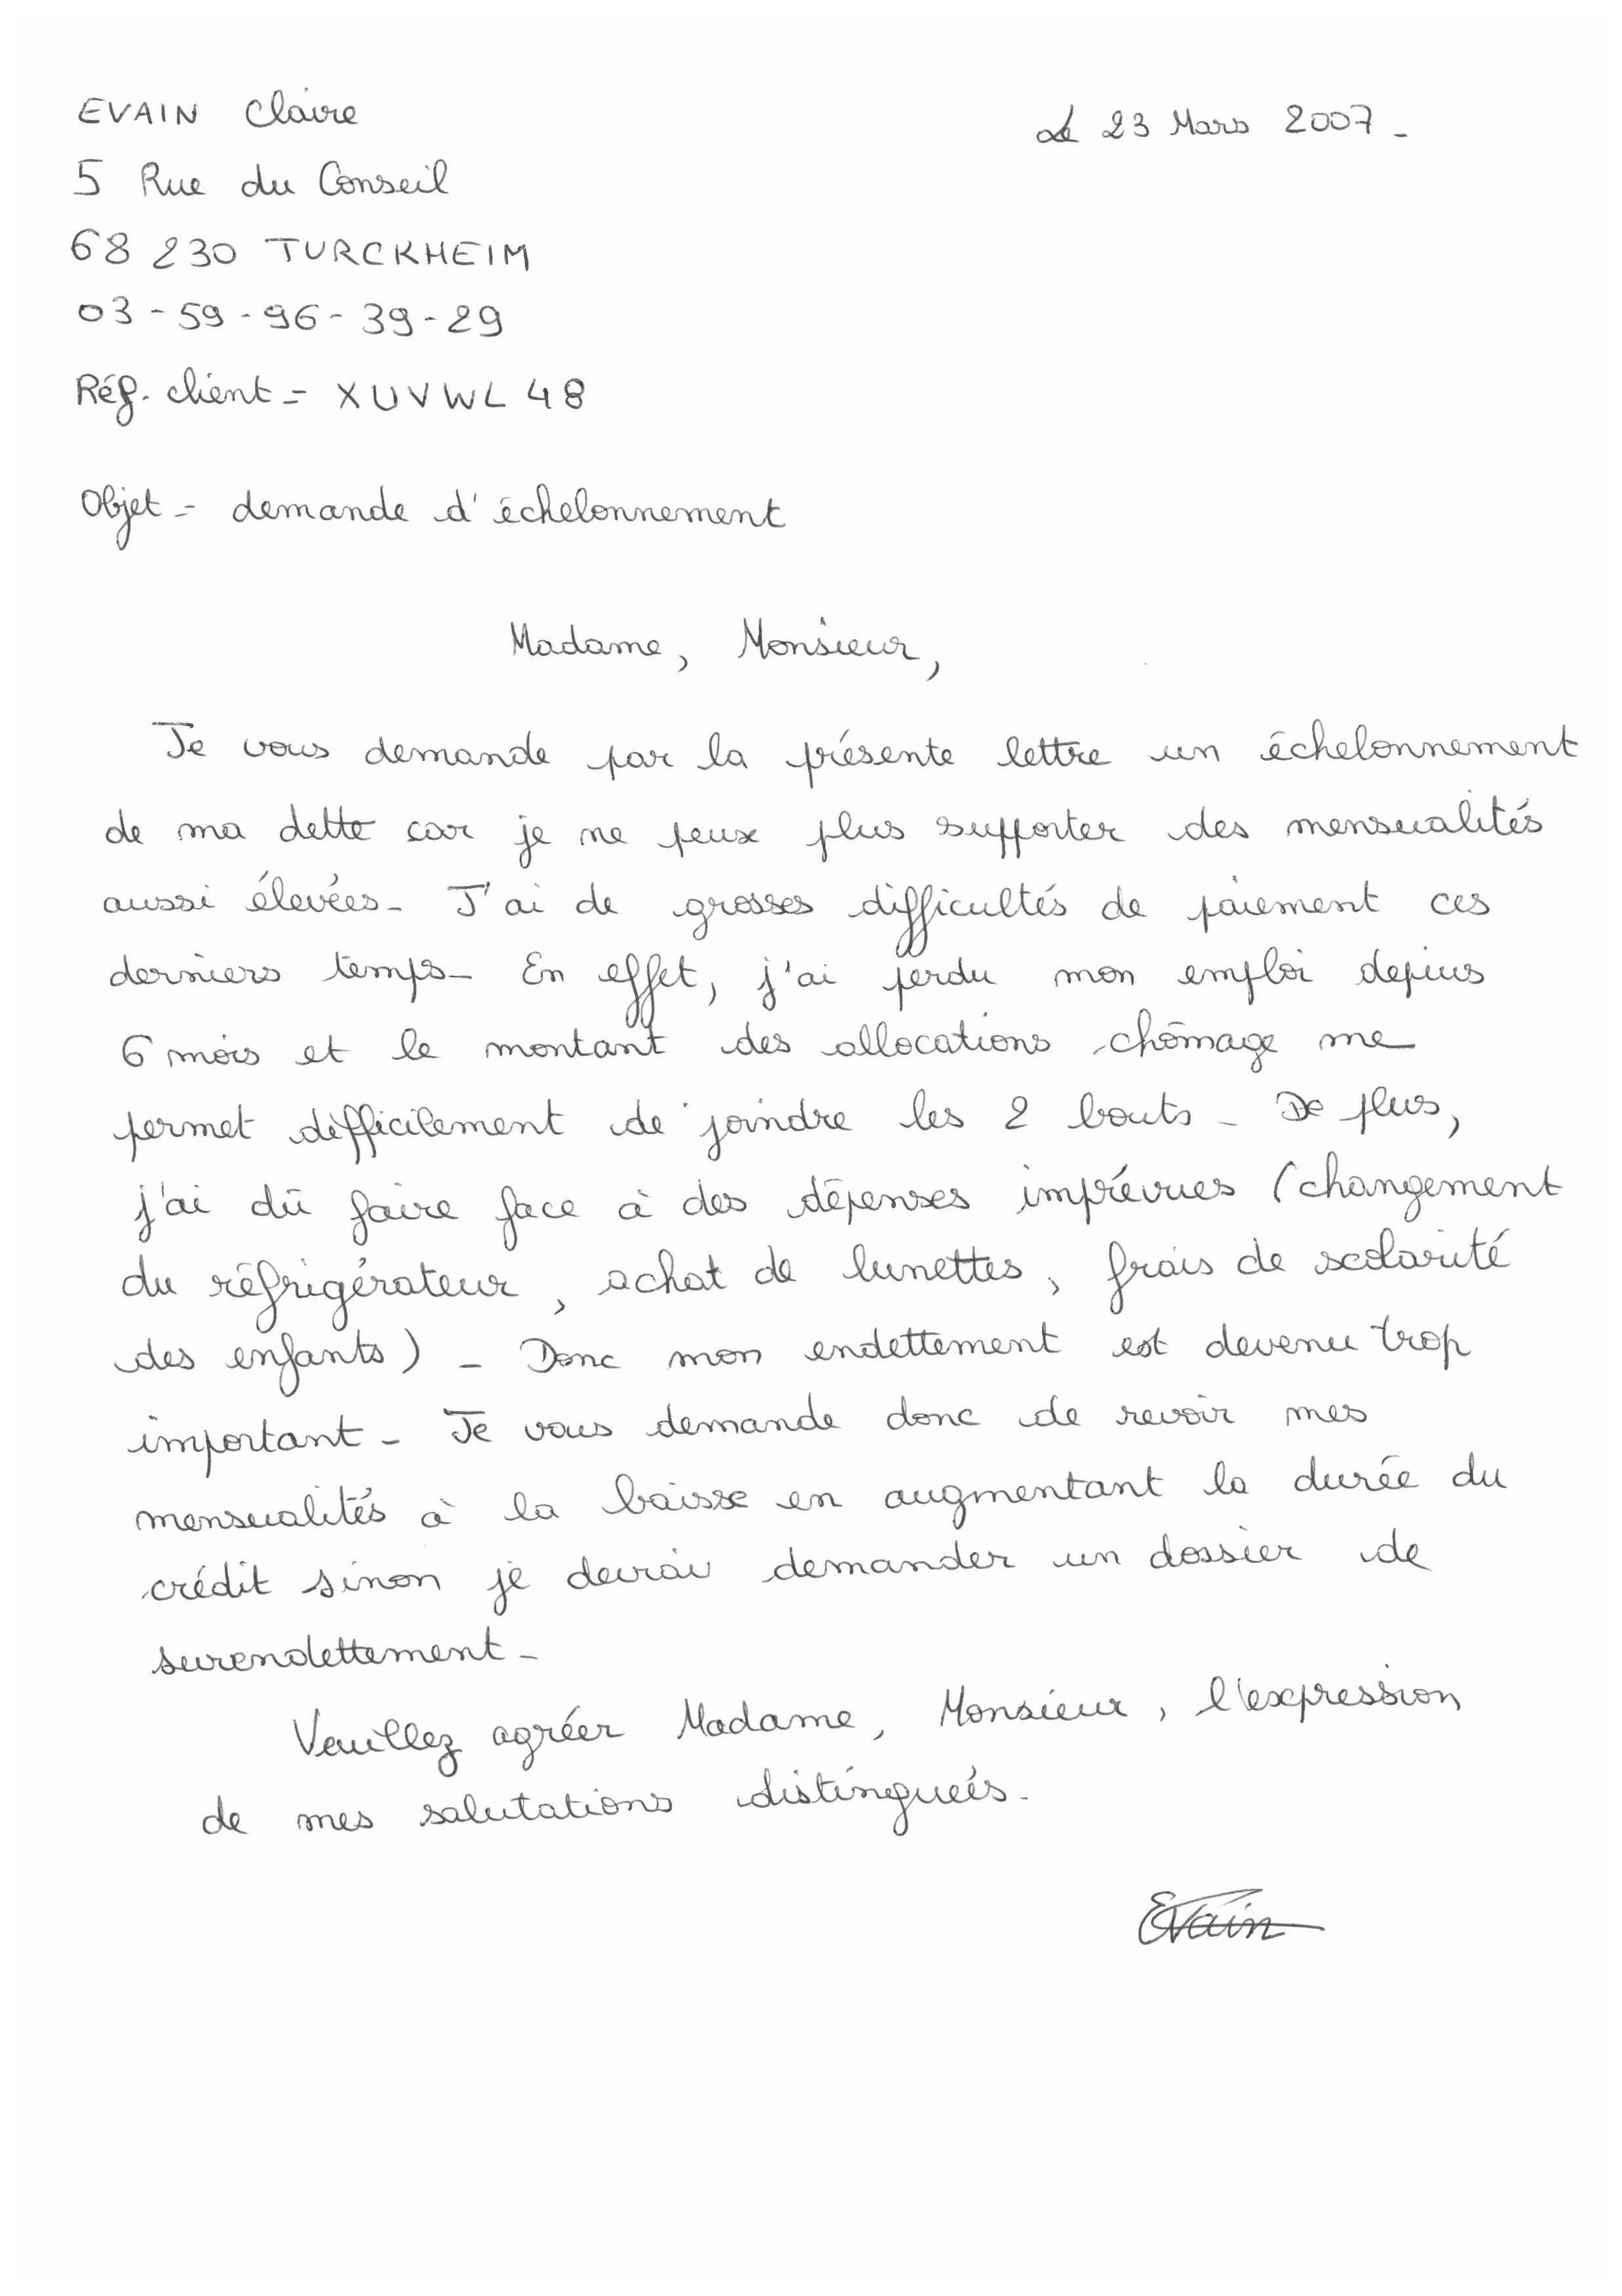 EVAIN Claire
Le 23 Mars 2007 -
5 Rue du Conseil
68 230 TURCKHEIM
03 - 59 - 96 - 39 - 29
Réf. client = XUVWL 48
Objet = demande d'échelonnement
Madame, Monsieur,
Je vous demande par la présente lettre un échelonnement
de ma dette car je ne peux plus supporter des mensualités
aussi élevées - J'ai de grosses difficultés de paiement ces
derniers temps - En effet, j'ai perdu mon emploi depuis
6 mois et le montant des allocations chômage me
permet difficilement de joindre les 2 bouts - De plus,
j'ai dû faire face à des dépenses imprévues (changement
du réfrigérateur, achat de lunettes, frais de scolarité
des enfants) - Donc mon endettement est devenu trop
important - Je vous demande donc de revoir mes
mensualités à la baisse en augmentant la durée du
crédit sinon je devrai demander un dossier de
surendettement -
Veuillez agréer Madame, Monsieur, l'expression
de mes salutations distinguées.
Evain